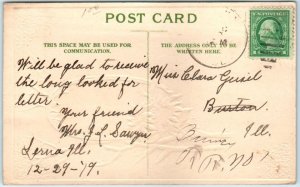 POST CARD
THIS SPACE MAY BE USED FOR
COMMUNICATION.
THE ADDRESS ONLY TO BE
WRITTEN HERE
Will be glad to receive
the long looked for
letter.
Your friend
Mrs. J. L. Sawyer
Lerna Ill.
12-29-'19.
Miss Clara
Ill.